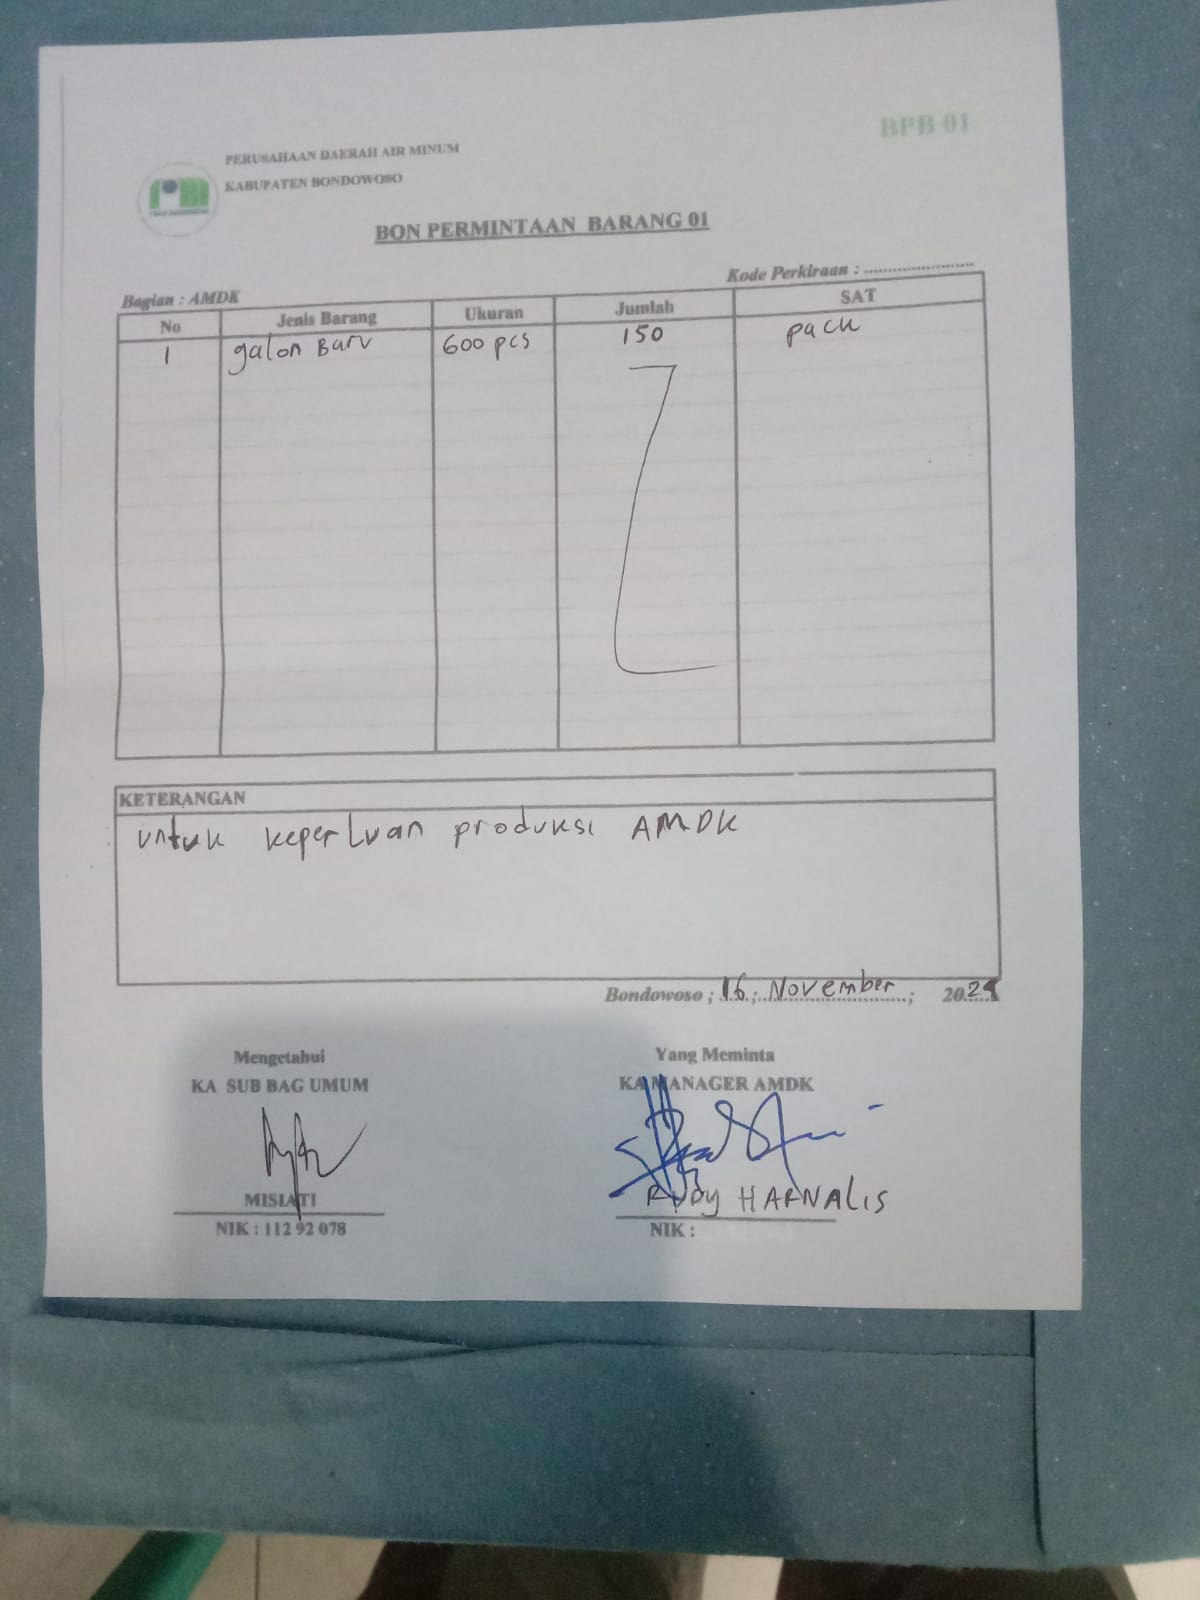 BPB 01
PERUSAHAAN DAERAH AIR MINUM
KABUPATEN BONDOWOSO
BON PERMINTAAN BARANG 01
Kode Perkiraan : ........................
Bagian : AMDK
No Jenis Barang Ukuran Jumlah SAT
1 galon Baru 600 pcs 150 pack
KETERANGAN
untuk keperluan produksi AMDK
Bondowoso ; 16 ; November ; 2024
Mengetahui
KA SUB BAG UMUM
MISIATI
NIK : 112 92 078
Yang Meminta
KA MANAGER AMDK
RUDY HARNALIS
NIK :